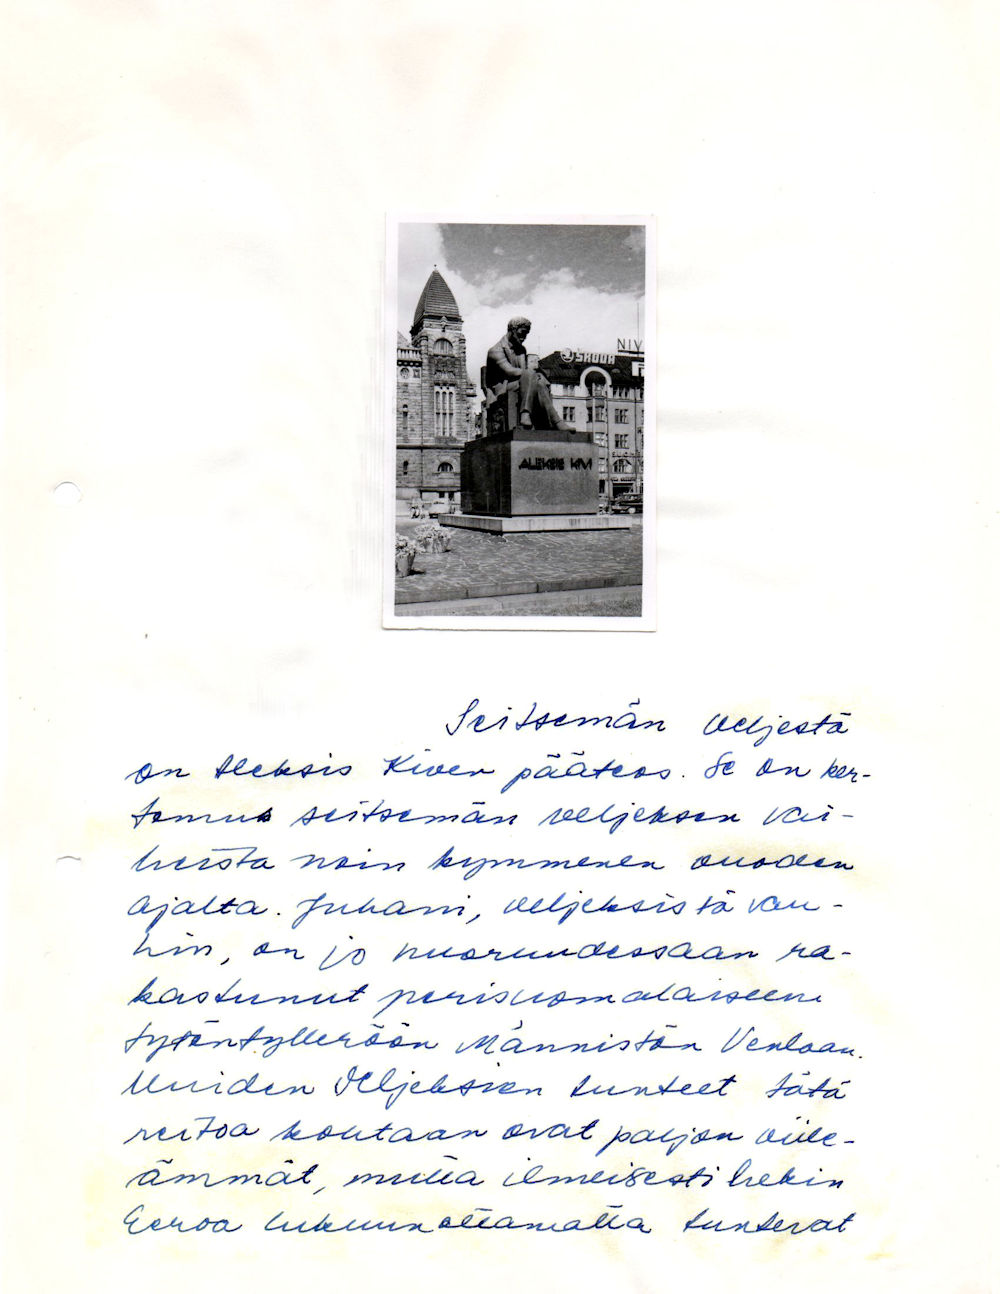 ŠKODA
NIV
ALEKSIS KIVI
Seitsemän veljestä
on Aleksis Kiven pääteos. Se on ker-
tomus seitsemän veljeksen vai-
heista noin kymmenen vuoden
ajalta. Juhani, veljeksistä van-
hin, on jo nuoruudessaan ra-
kastunut perisuomalaiseen
tytöntylleröön Männistön Venlaan.
Muiden veljeksien tunteet tätä
neitoa kohtaan ovat paljon viile-
ämmät, mutta ilmeisesti hekin
Eeroa lukuunottamatta tuntevat